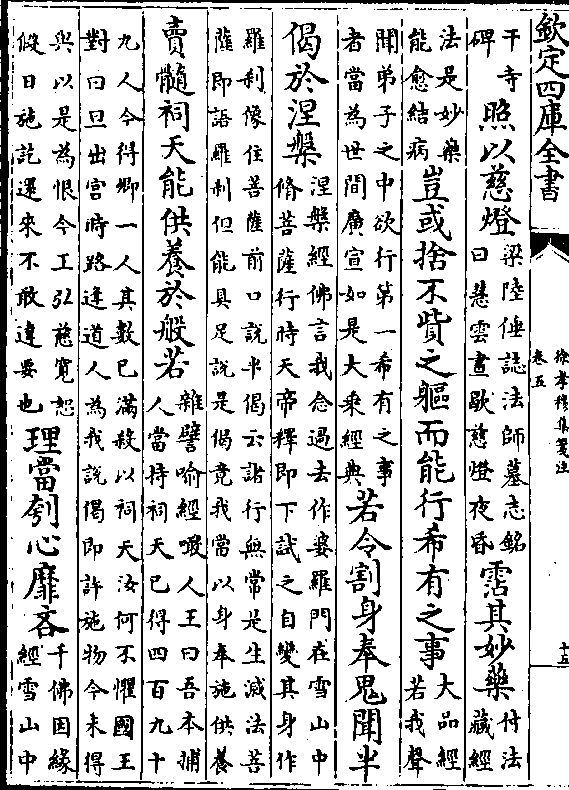 欽定四庫全書
徐孝穆集箋注
卷五
十五
干寺
碑
照以慈燈
梁陸倕誌法師墓志銘
曰慧雲晝歇慈燈夜昏
霑其妙藥
付法
藏經
法是妙藥
能愈結病
豈或捨不貲之軀而能行希有之事
大品經
若我聲
聞弟子之中欲行第一希有之事
者當為世間廣宣如是大乘經典
若令割身奉鬼聞半
偈於涅槃
涅槃經佛言我念過去作婆羅門在雪山中
脩菩薩行時天帝釋即下試之自變其身作
羅刹像住菩薩前口說半偈云諸行無常是生滅法菩
薩即語羅刹但能具足說是偈竟我當以身奉施供養
賣髓祠天能供養於般若
雜譬喻經噉人王曰吾本捕
人當持祠天已得四百九十
九人今得卿一人其數已滿殺以祠天汝何不懼國王
對曰旦出宫時路逢道人為我說偈即許施物今未得
與以是為恨今王弘慈寛恕
假日施訖還來不敢違要也
理當刳心靡吝
千佛因緣
經雪山中